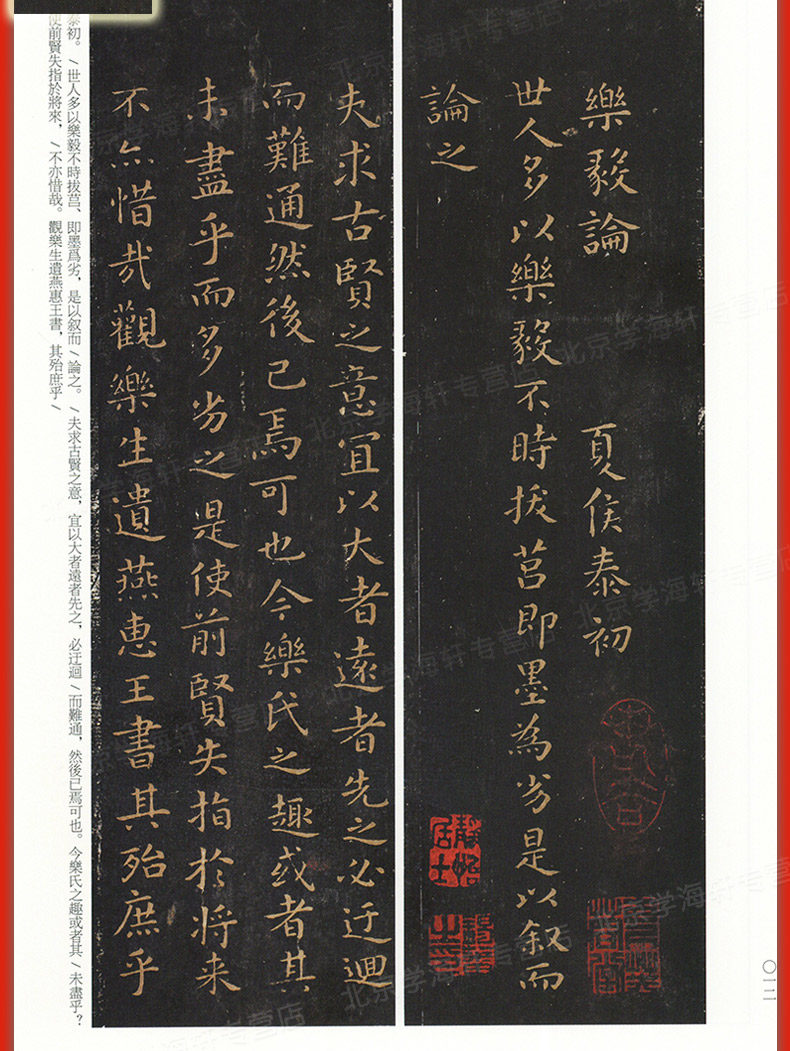 樂毅論 夏侯泰初
世人多以樂毅不時拔莒即墨為劣是以叙而
論之
夫求古賢之意宜以大者遠者先之必迂迴
而難通然後已焉可也今樂氏之趣或者其
未盡乎而多劣之是使前賢失指於將来
不亦惜哉觀樂生遺燕惠王書其殆庶乎
泰初。/世人多以樂毅不時拔莒、即墨爲劣，是以叙而/論之。/夫求古賢之意，宜以大者遠者先之，必迂迴/而難通，然後已焉可也。今樂氏之趣或者其/未盡乎？
使前賢失指於將來，/不亦惜哉。觀樂生遺燕惠王書，其殆庶乎/
〇一二
靜怡
居士
北京学海轩专营店